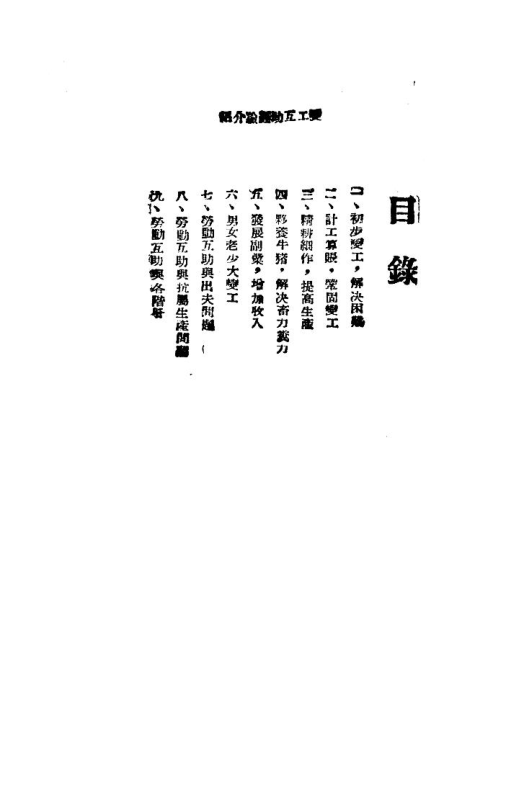 變工互助經驗介紹
目錄
一、初步變工，解决困難
二、計工算賬，鞏固變工
三、精耕細作，提高生產
四、夥養牛猪，解决畜力糞力
五、發展副業，增加收入
六、男女老少大變工
七、勞動互助與出夫問題
八、勞動互助與抗屬生產問題
九、勞動互助與各階層